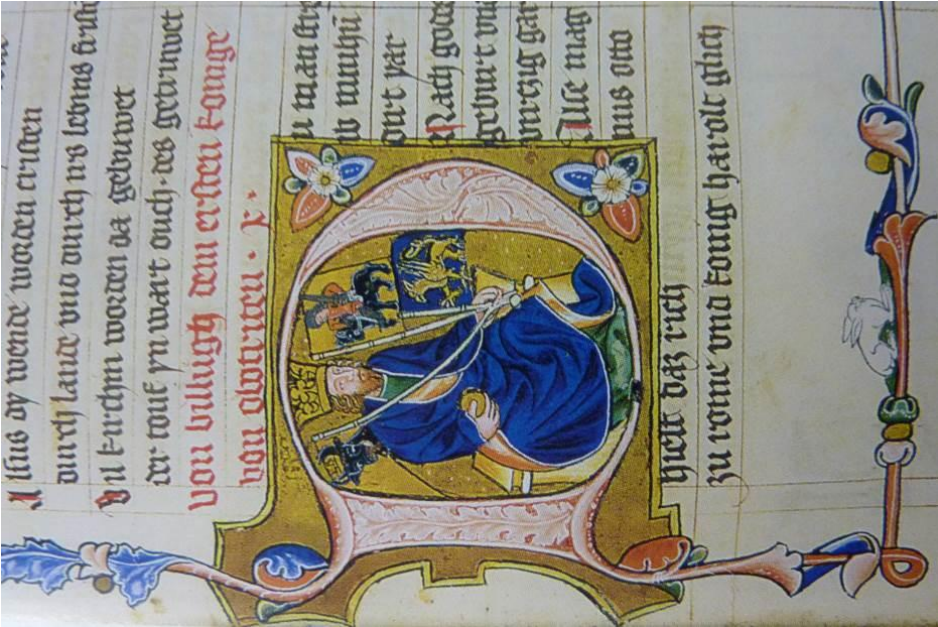 Alsus dy wende worden cristen
durch lande vnd durch irs lebins
Vil kirchin worden da gebuwet
der touf yn wart ouch des getruwet
von billugh dem ersten konige
von obotriten · x ·
man
Nach
geburt
virtzig gar
Alse mag
otto
hielt daz rich
zu rome vnd konig harolt glich